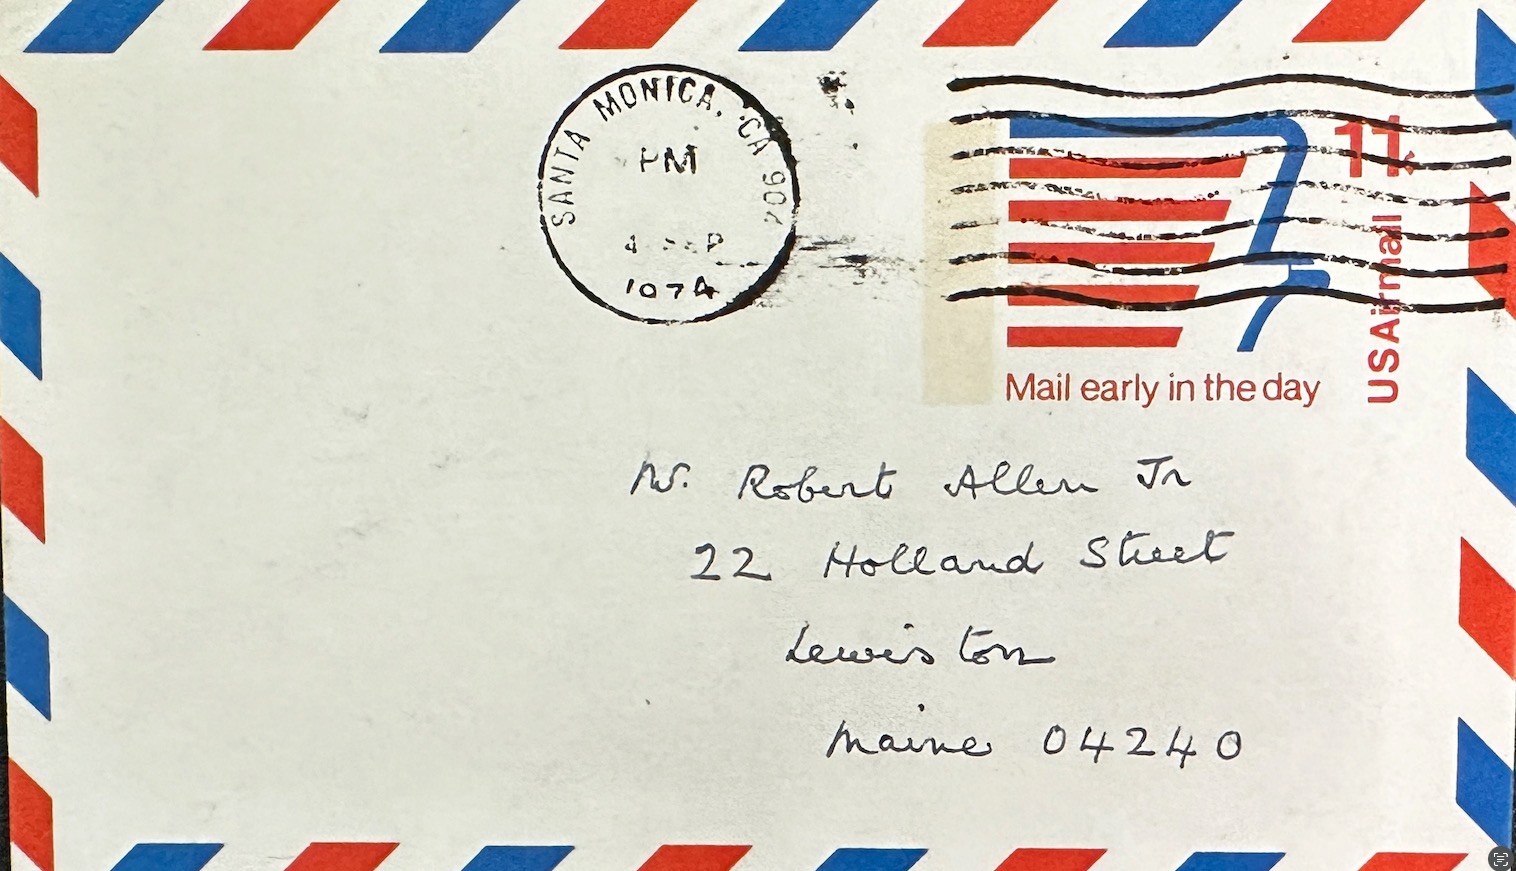 SANTA MONICA, CA 904
PM
4 SEP
1974
11
USAirmail
Mail early in the day
Mr. Robert Allen Jr
22 Holland Street
Lewiston
Maine 04240